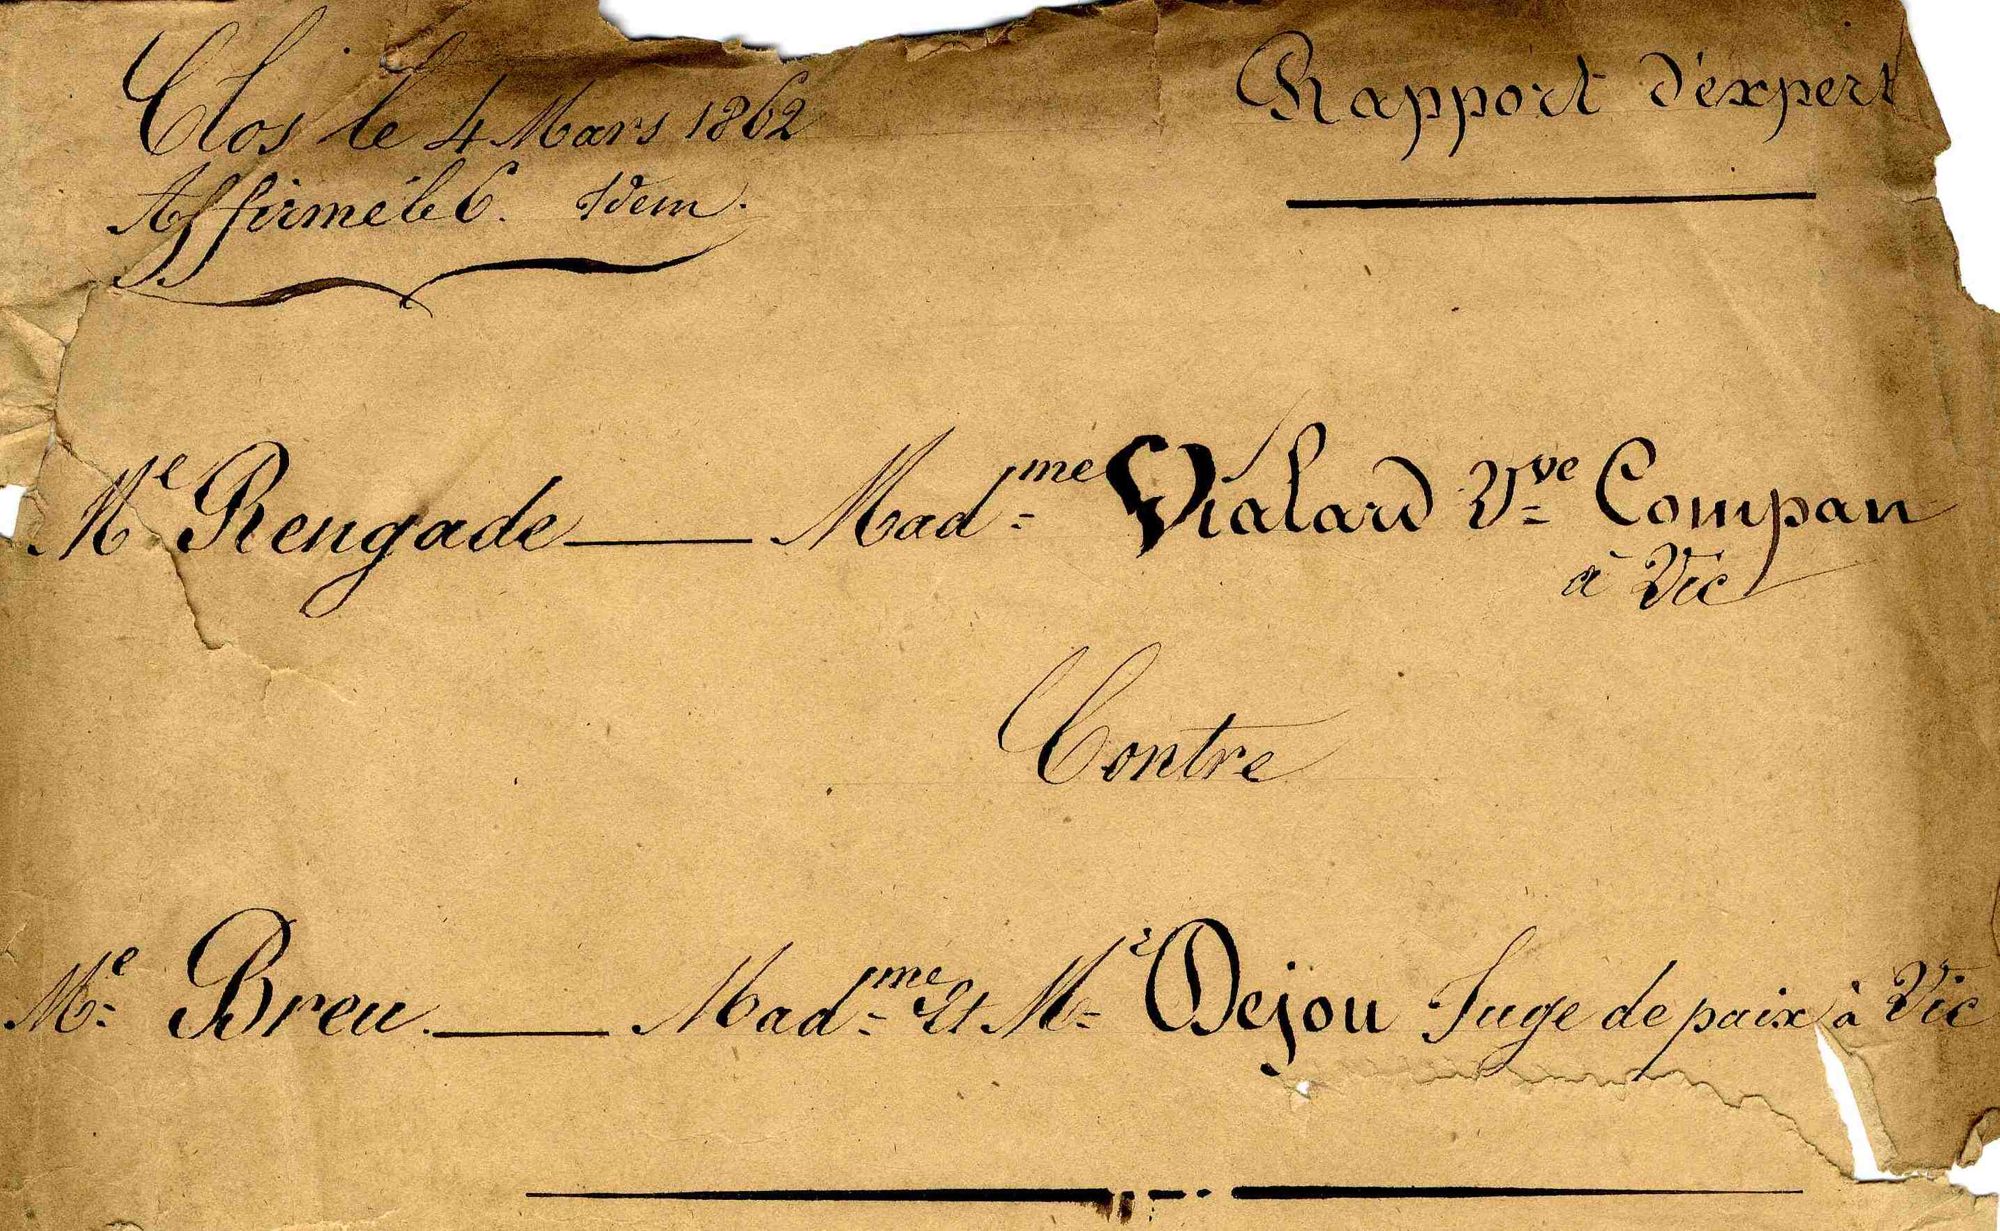 Clos le 4 Mars 1862
Affirmé le 6. Idem.
Rapport d'expert
Me Rengade — Madme Vialard Vve Compan
à Vic
Contre
Me Breu — Madme Et Mr Dejou Juge de paix à Vic